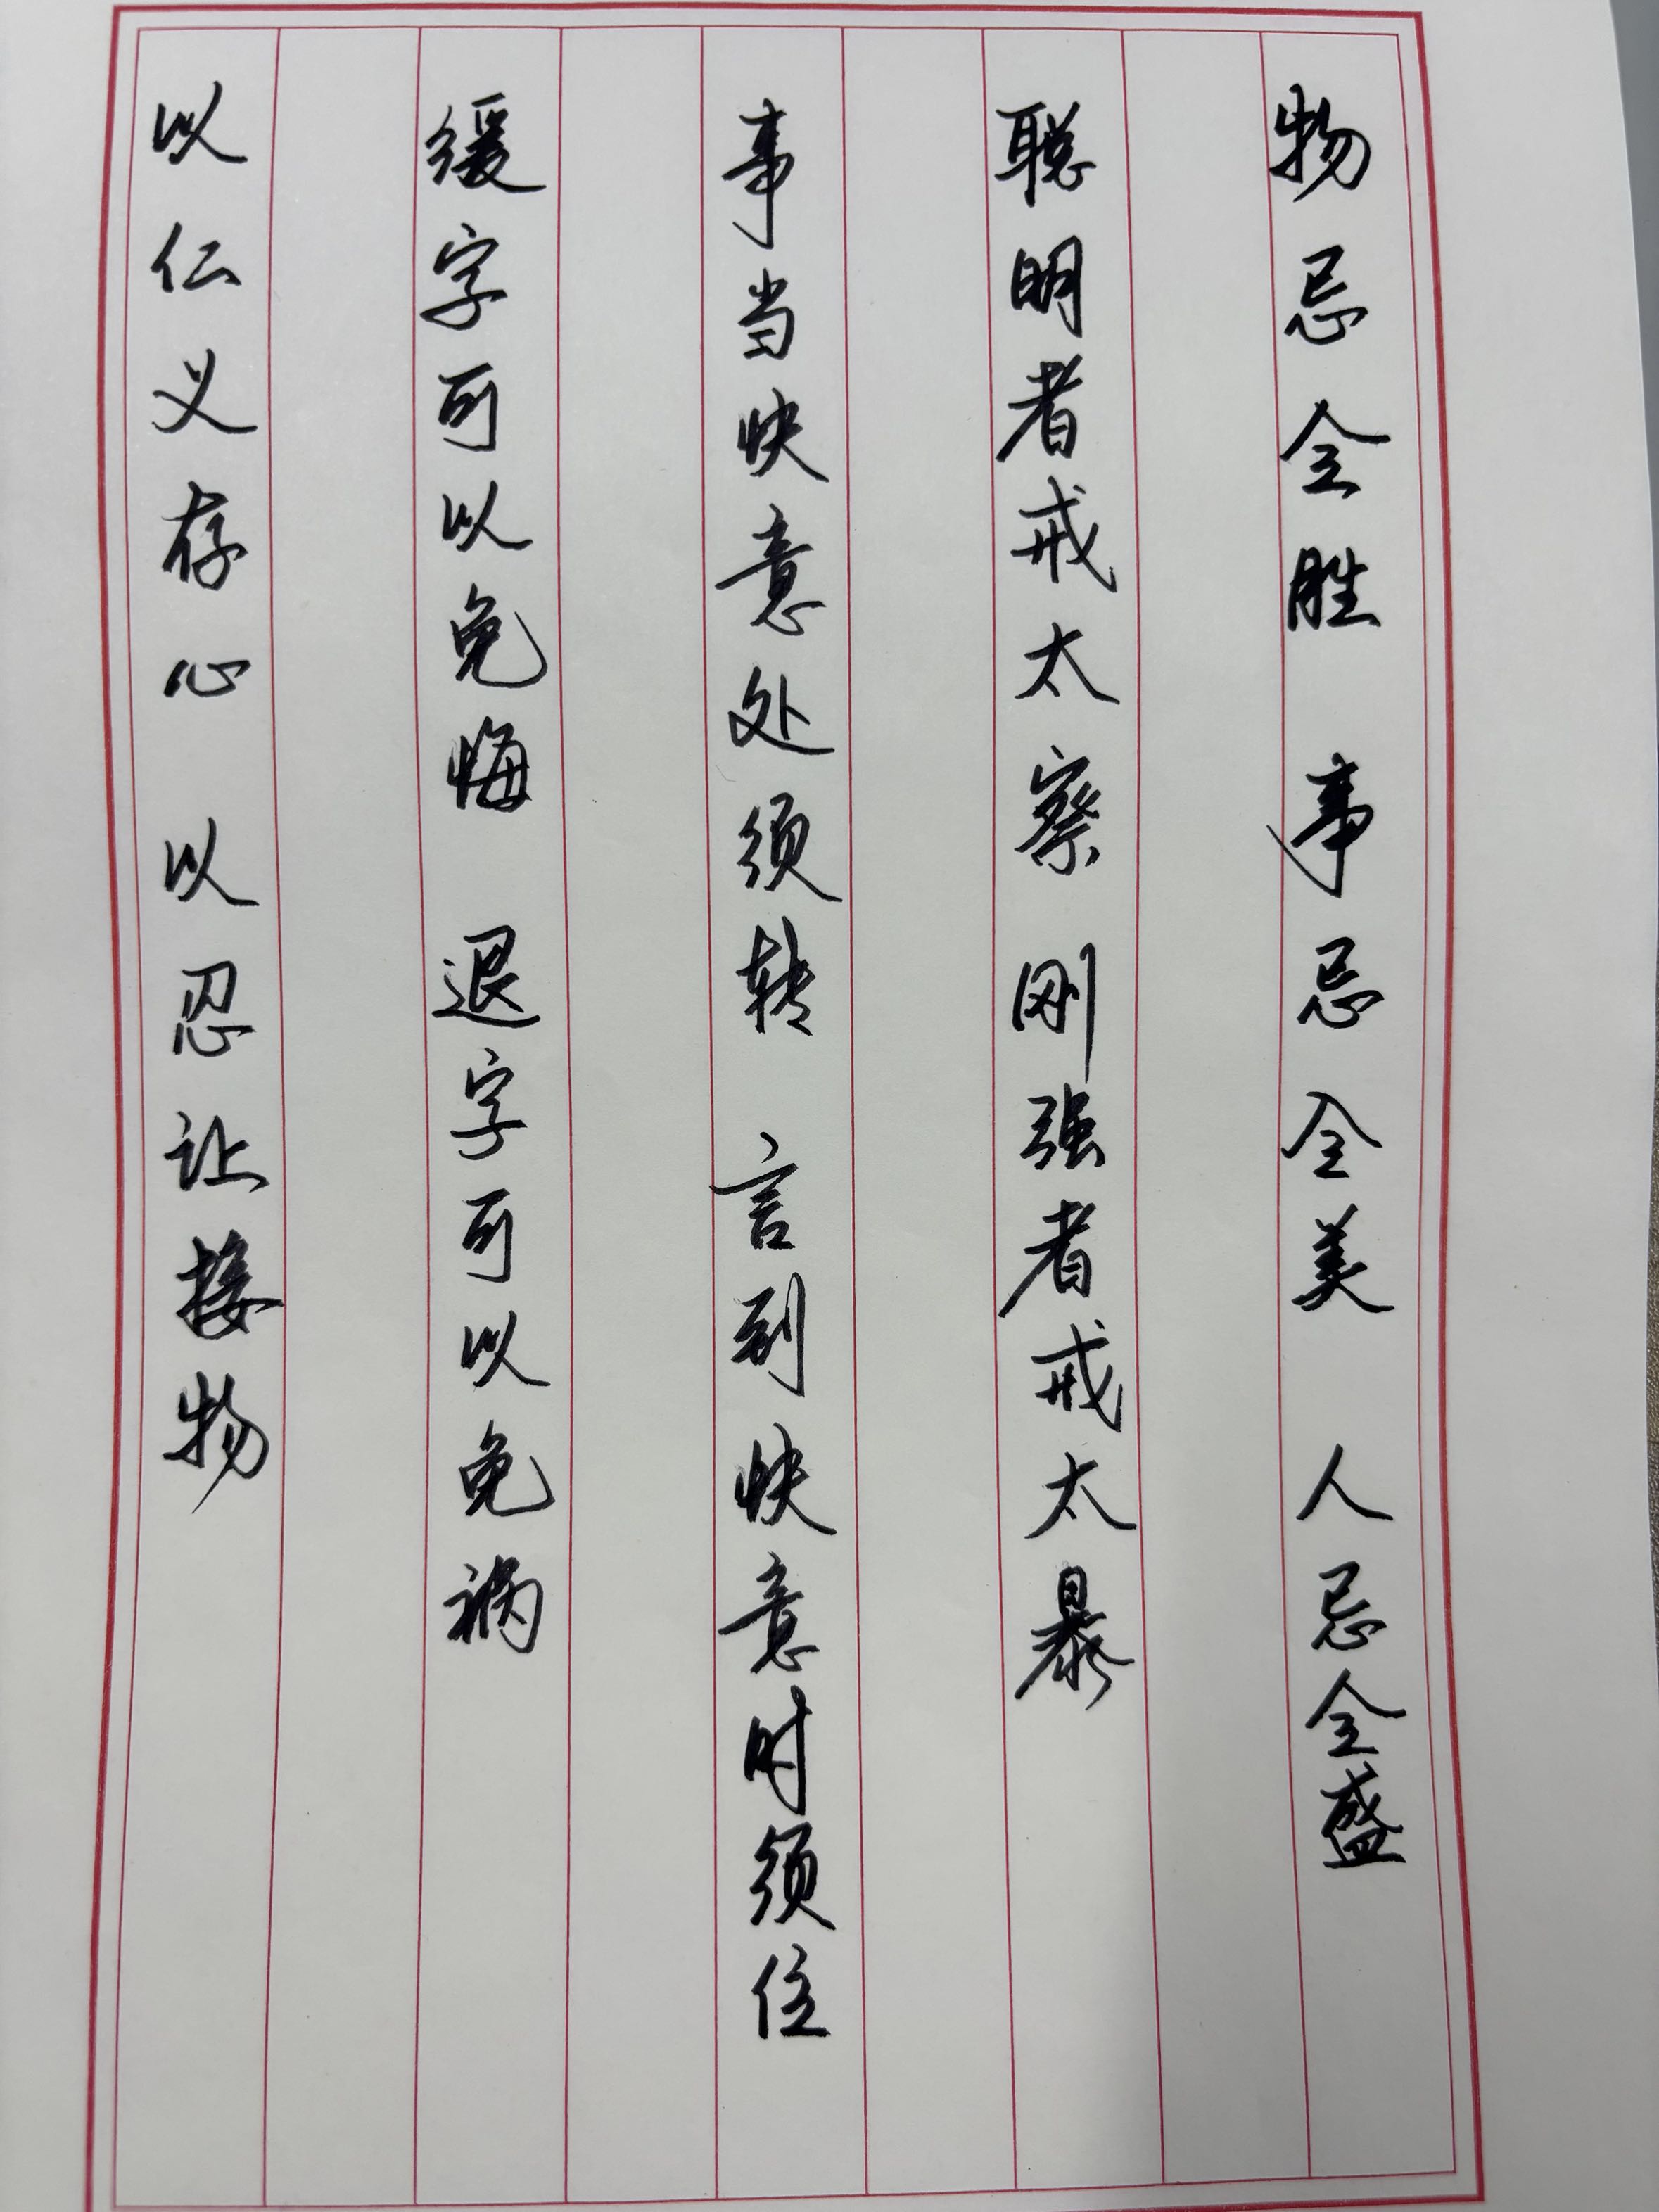 物忌全胜 事忌全美 人忌全盛
聪明者戒太察 刚强者戒太暴
事当快意处须转 言到快意时须住
缓字可以免悔 退字可以免祸
以仁义存心 以忍让接物